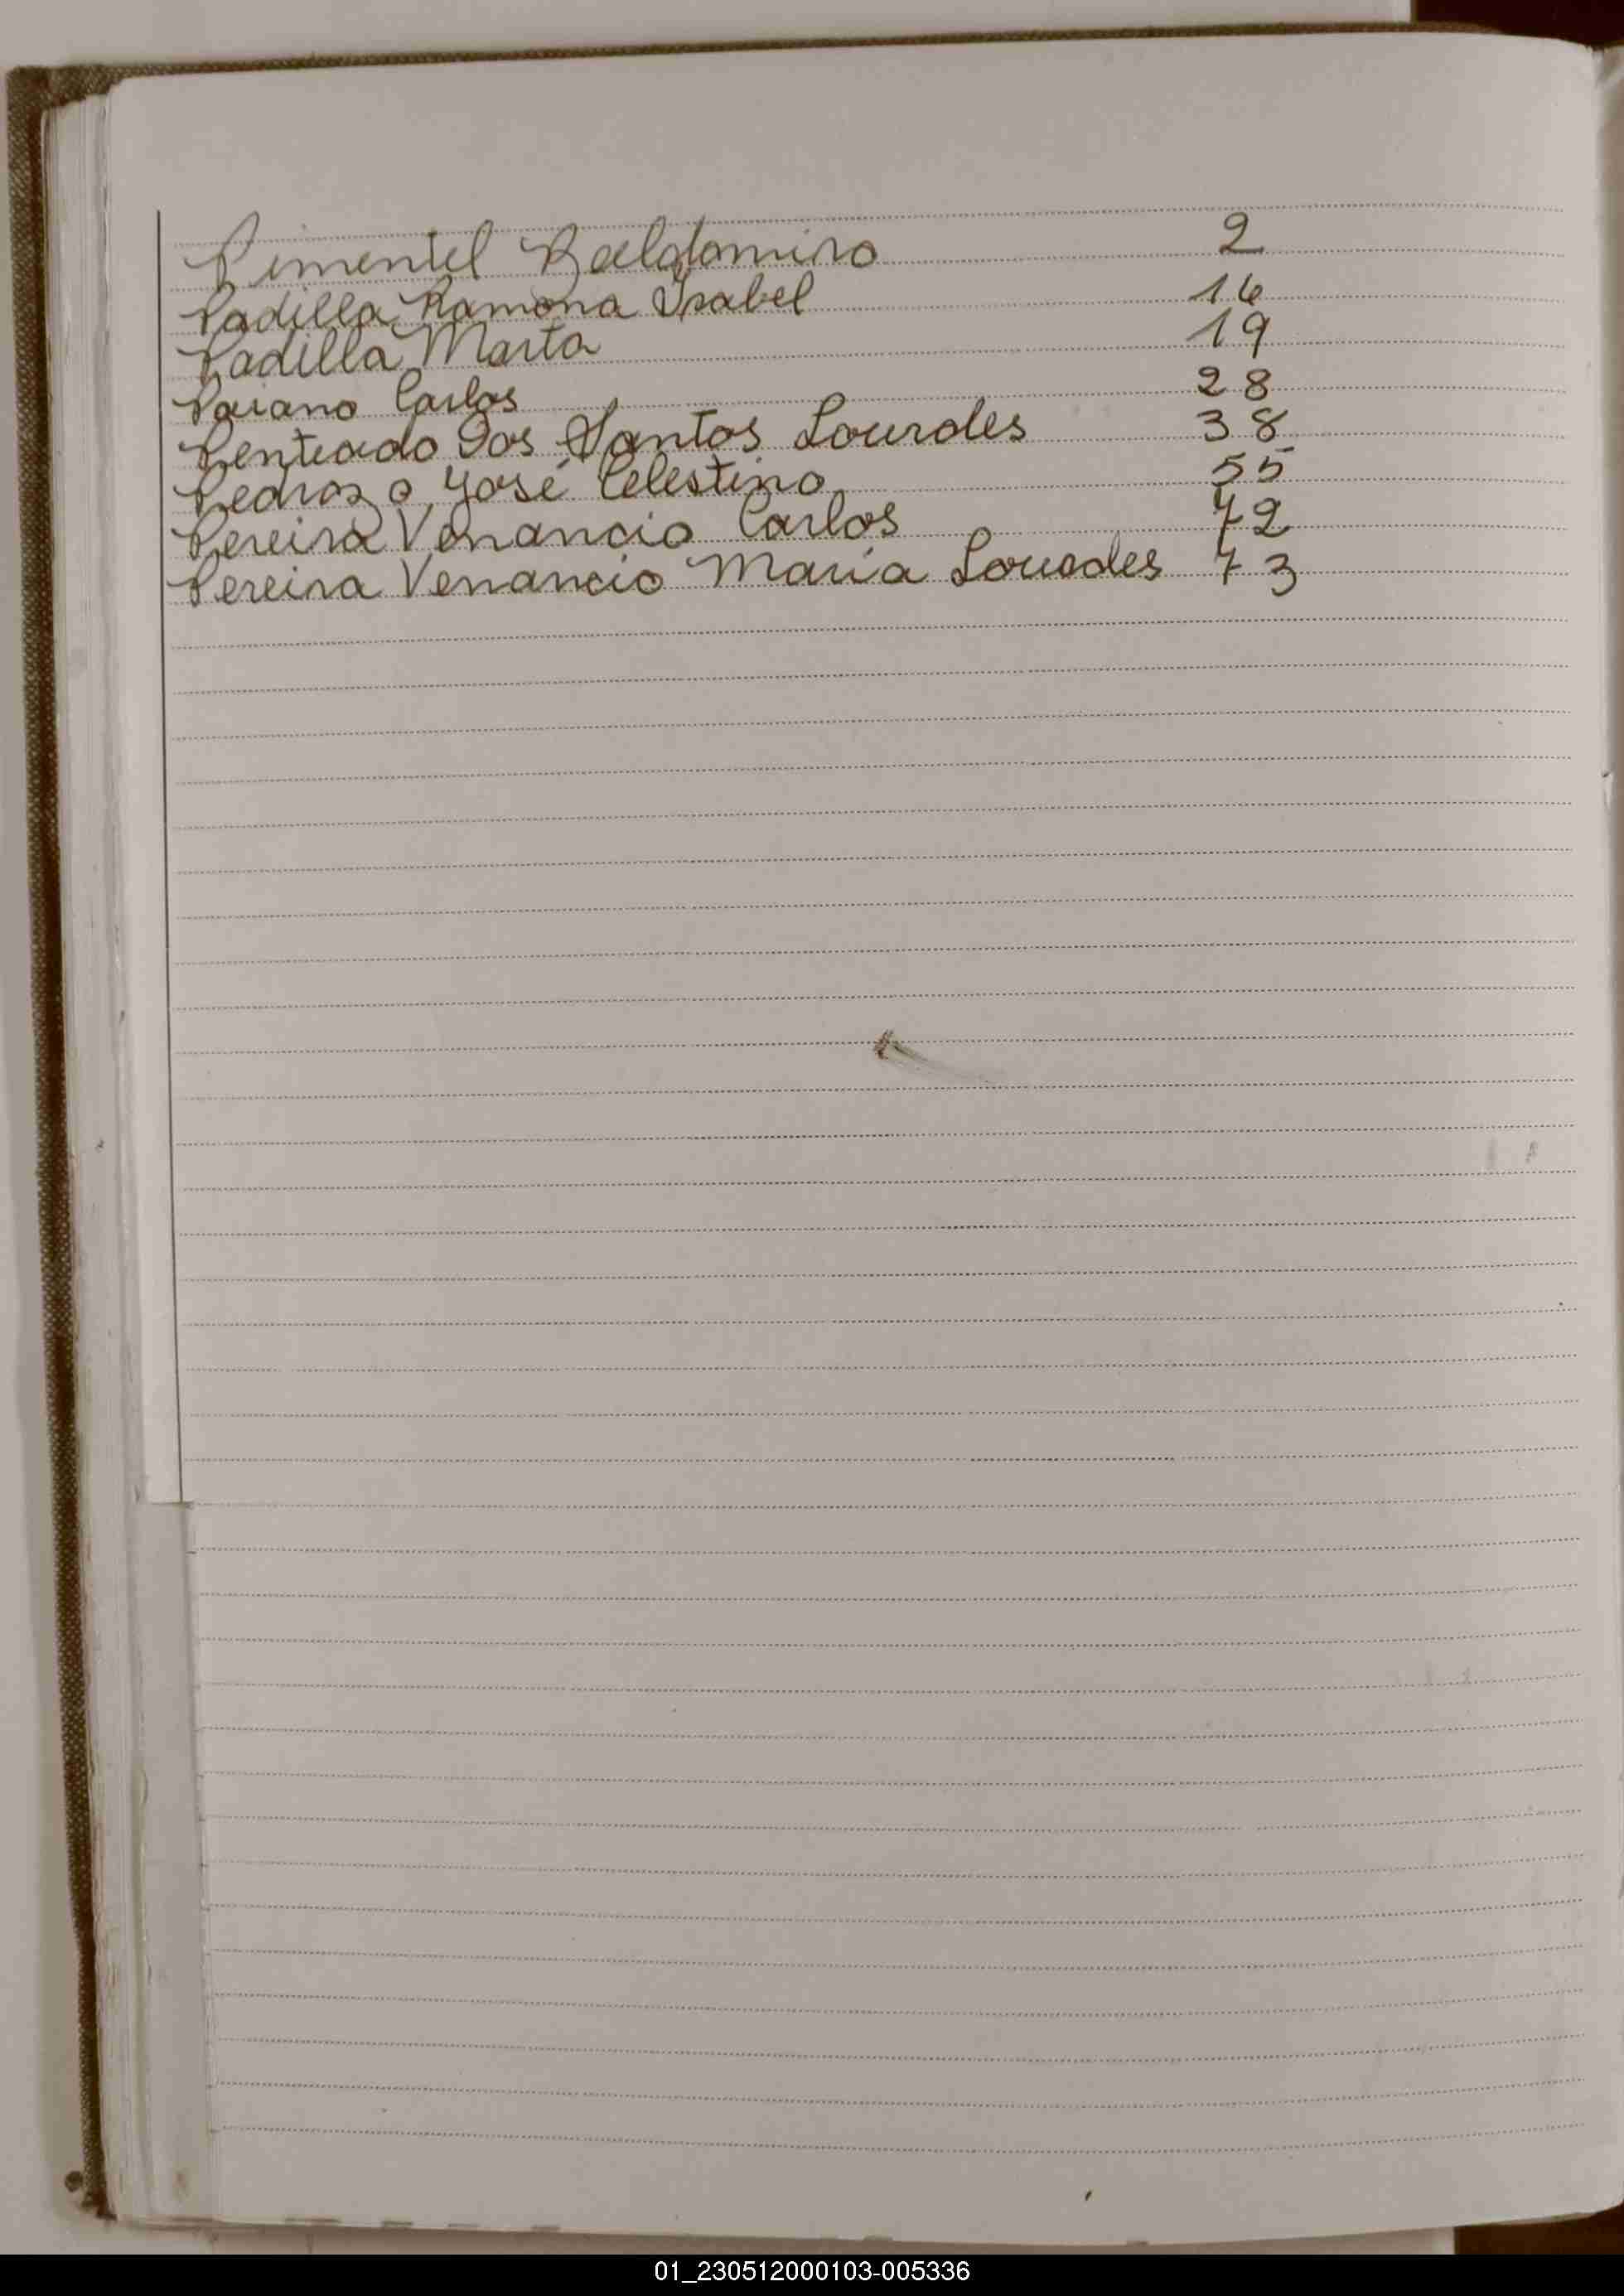 Pimentel Baldomiro 2
Padilla Ramona Isabel 16
Padilla Marta 19
Paiano Carlos 28
Penteado Dos Santos Lourdes 38
Pedrozo José Celestino 55
Pereira Venancio Carlos 72
Pereira Venancio María Lourdes 73
01_230512000103-005336